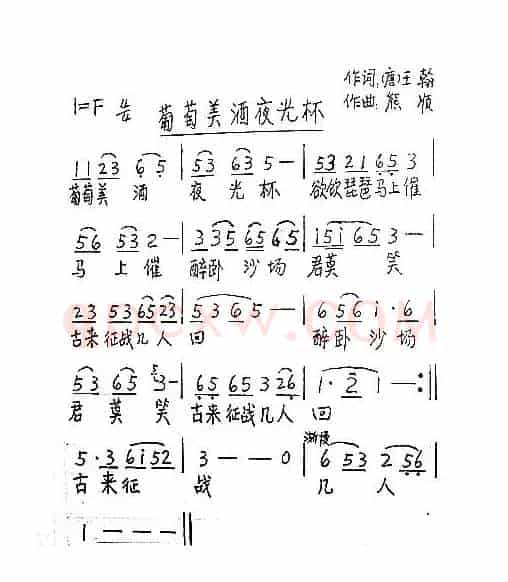 作词:唐王翰
1=F 4/4 葡萄美酒夜光杯 作曲:熊顺
11 23 6 5 | 53 63 5 — | 53 21 65 3 |
葡萄美 酒 夜 光 杯 欲饮琵琶马上催
56 53 2 — | 335 65 65 | 151 65 3 — |
马 上 催 醉卧 沙 场 君莫 笑
23 53 65 23 | 5 3 6 5 — | 6 56 1· 6 |
古来 征战几 人 回 醉卧 沙 场
53 65 3 — | 65 65 3 26 | 1· 2 1 — :||
君 莫 笑 古来 征战几人 回
渐慢
5·3 61 52 | 3 — — 0 | 6 53 2 56 |
古来 征 战 几 人
1 — — — ||